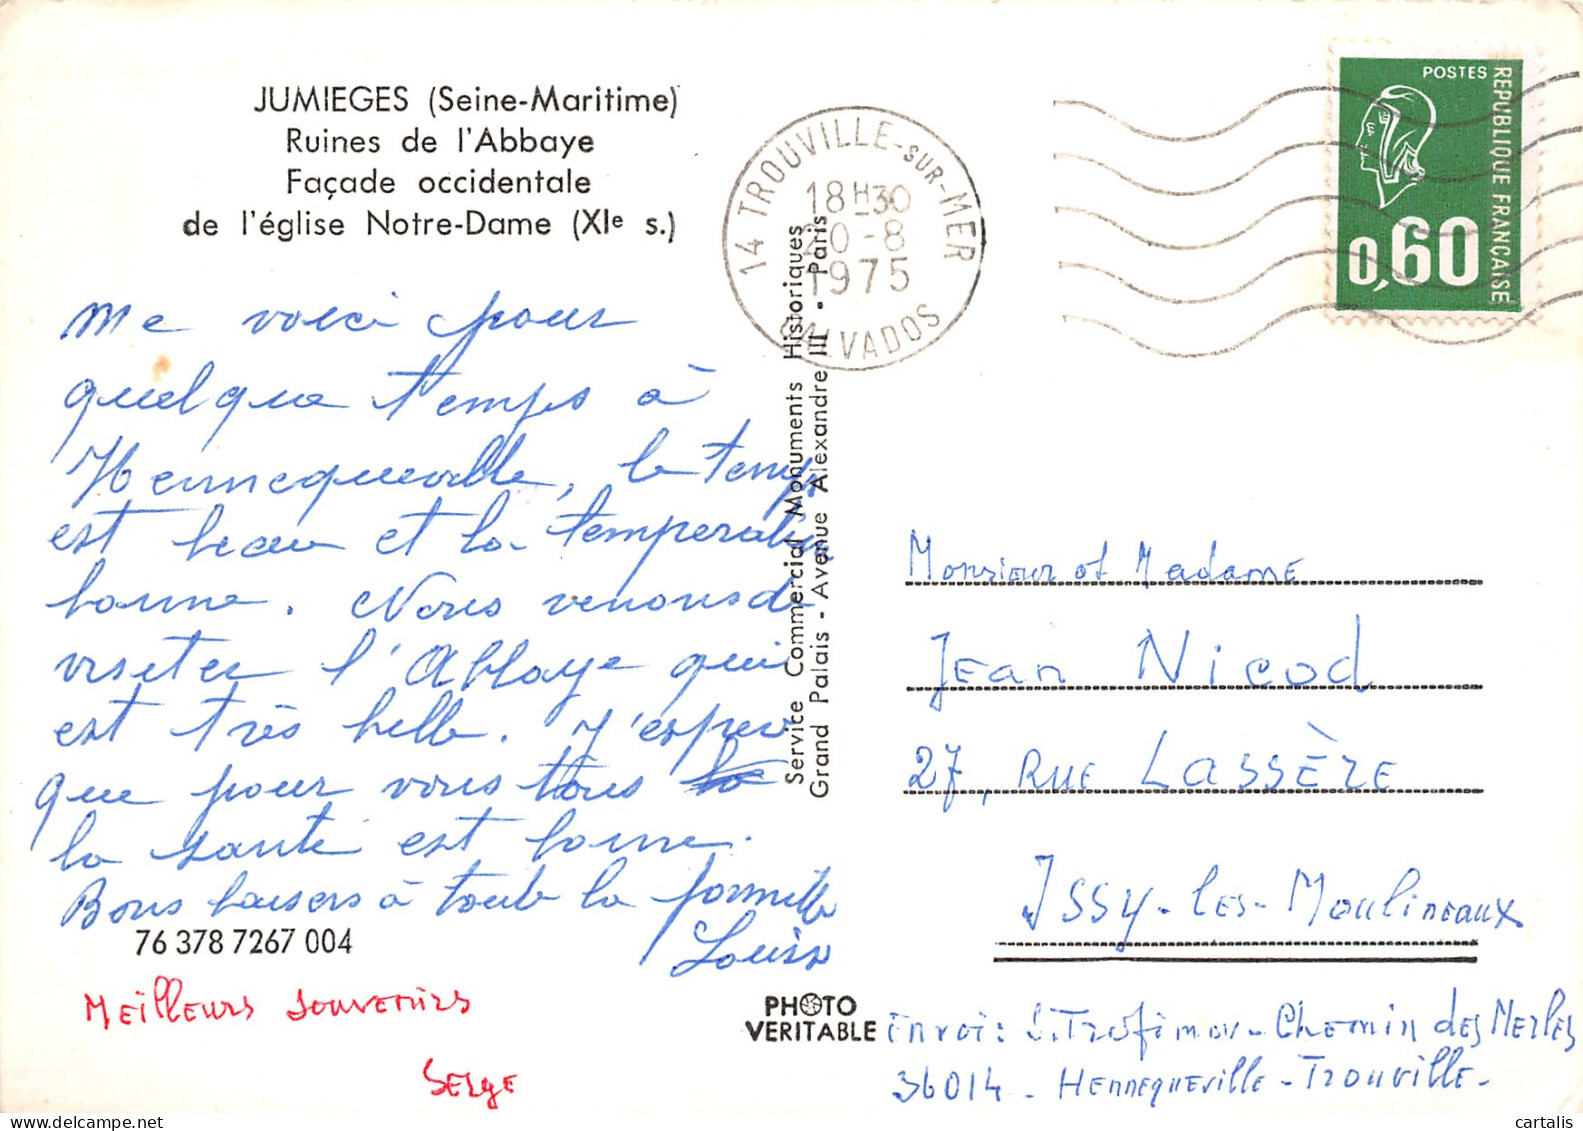 JUMIEGES (Seine-Maritime)
Ruines de l'Abbaye
Façade occidentale
de l'église Notre-Dame (XIe s.)
14 TROUVILLE-SUR-MER
18H30
20-8
1975
CALVADOS
POSTES
REPUBLIQUE FRANÇAISE
0,60
Me voici pour
quelque temps à
Hennequeville, le temps
est beau et la température
bonne. Nous venons de
visiter l'Abbaye qui
est très belle. J'espère
que pour vous tous la
la santé est bonne.
Bons baisers à toute la famille
Louise
76 378 7267 004
Meilleurs souvenirs
Serge
Service Commercial Monuments Historiques
Grand Palais - Avenue Alexandre III - Paris
PHOTO
VERITABLE
Monsieur et Madame
Jean Nicod
27, Rue Lassère
Issy-les-Moulineaux
Envoi: S. Trofimov - Chemin des Merles
36014 - Hennequeville - Trouville -
cartalis